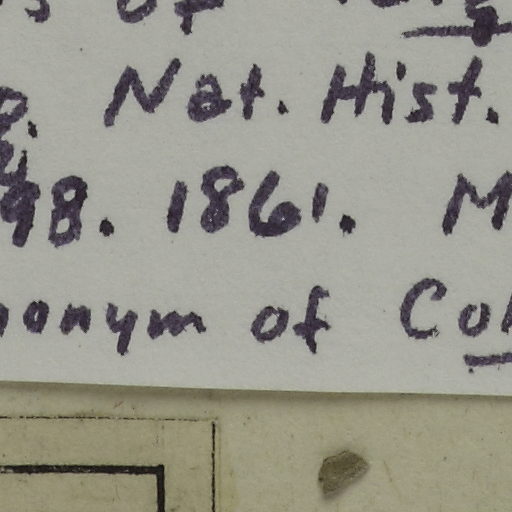 of
Nat. Hist.
98. 1861. M
onym of Col